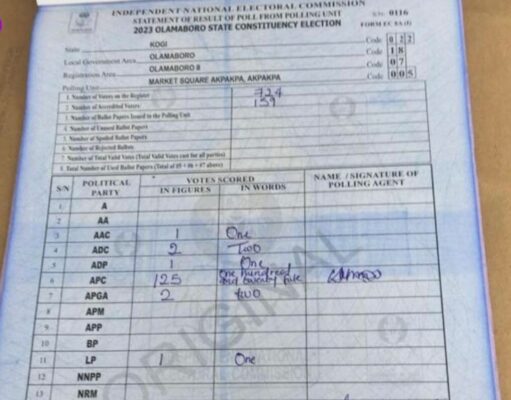 INDEPENDENT NATIONAL ELECTORAL COMMISSION
STATEMENT OF RESULT OF POLL FROM POLLING UNIT
S/No 0116
2023 OLAMABORO STATE CONSTITUENCY ELECTION
FORM EC 8A (I)
State KOGI Code 022
Local Government Area OLAMABORO Code 18
Registration Area OLAMABORO 8 Code 07
Polling Unit MARKET SQUARE AKPAKPA, AKPAKPA Code 005
1. Number of Voters on the Register 724
2. Number of Accredited Voters 159
3. Number of Ballot Papers Issued to the Polling Unit
4. Number of Unused Ballot Papers
5. Number of Spoiled Ballot Papers
6. Number of Rejected Ballots
7. Number of Total Valid Votes (Total Valid Votes cast for all parties)
8. Total Number of Used Ballot Papers (Total of #5 + #6 + #7 above)
S/N POLITICAL PARTY VOTES SCORED NAME / SIGNATURE OF POLLING AGENT
IN FIGURES IN WORDS
1 A
2 AA
3 AAC 1 One
4 ADC 2 Two
5 ADP 1 One
6 APC 125 One hundred and twenty five
7 APGA 2 two
8 APM
9 APP
10 BP
11 LP 1 One
12 NNPP
13 NRM
ORIGINAL